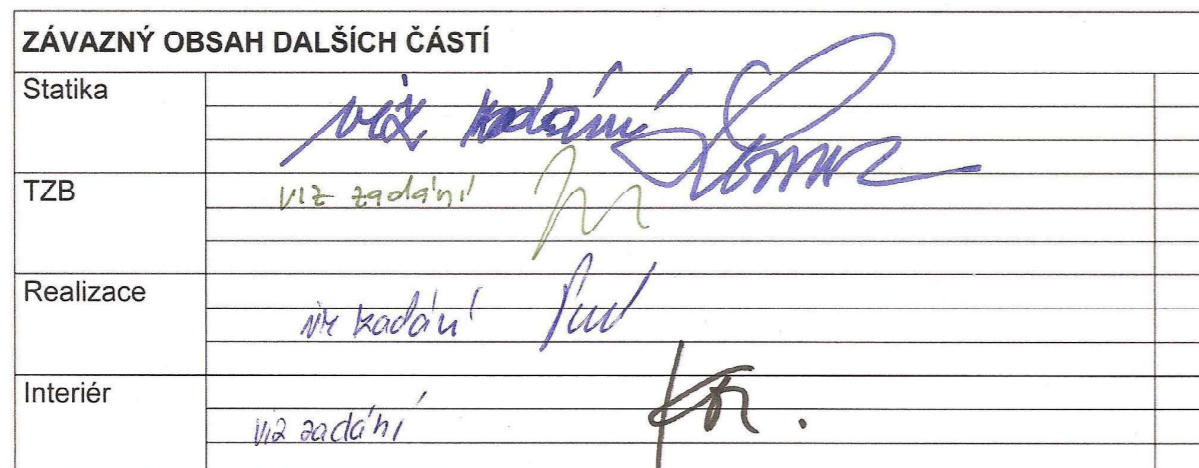 ZÁVAZNÝ OBSAH DALŠÍCH ČÁSTÍ
Statika
viz zadání
TZB
viz zadání
Realizace
viz zadání
Interiér
viz zadání